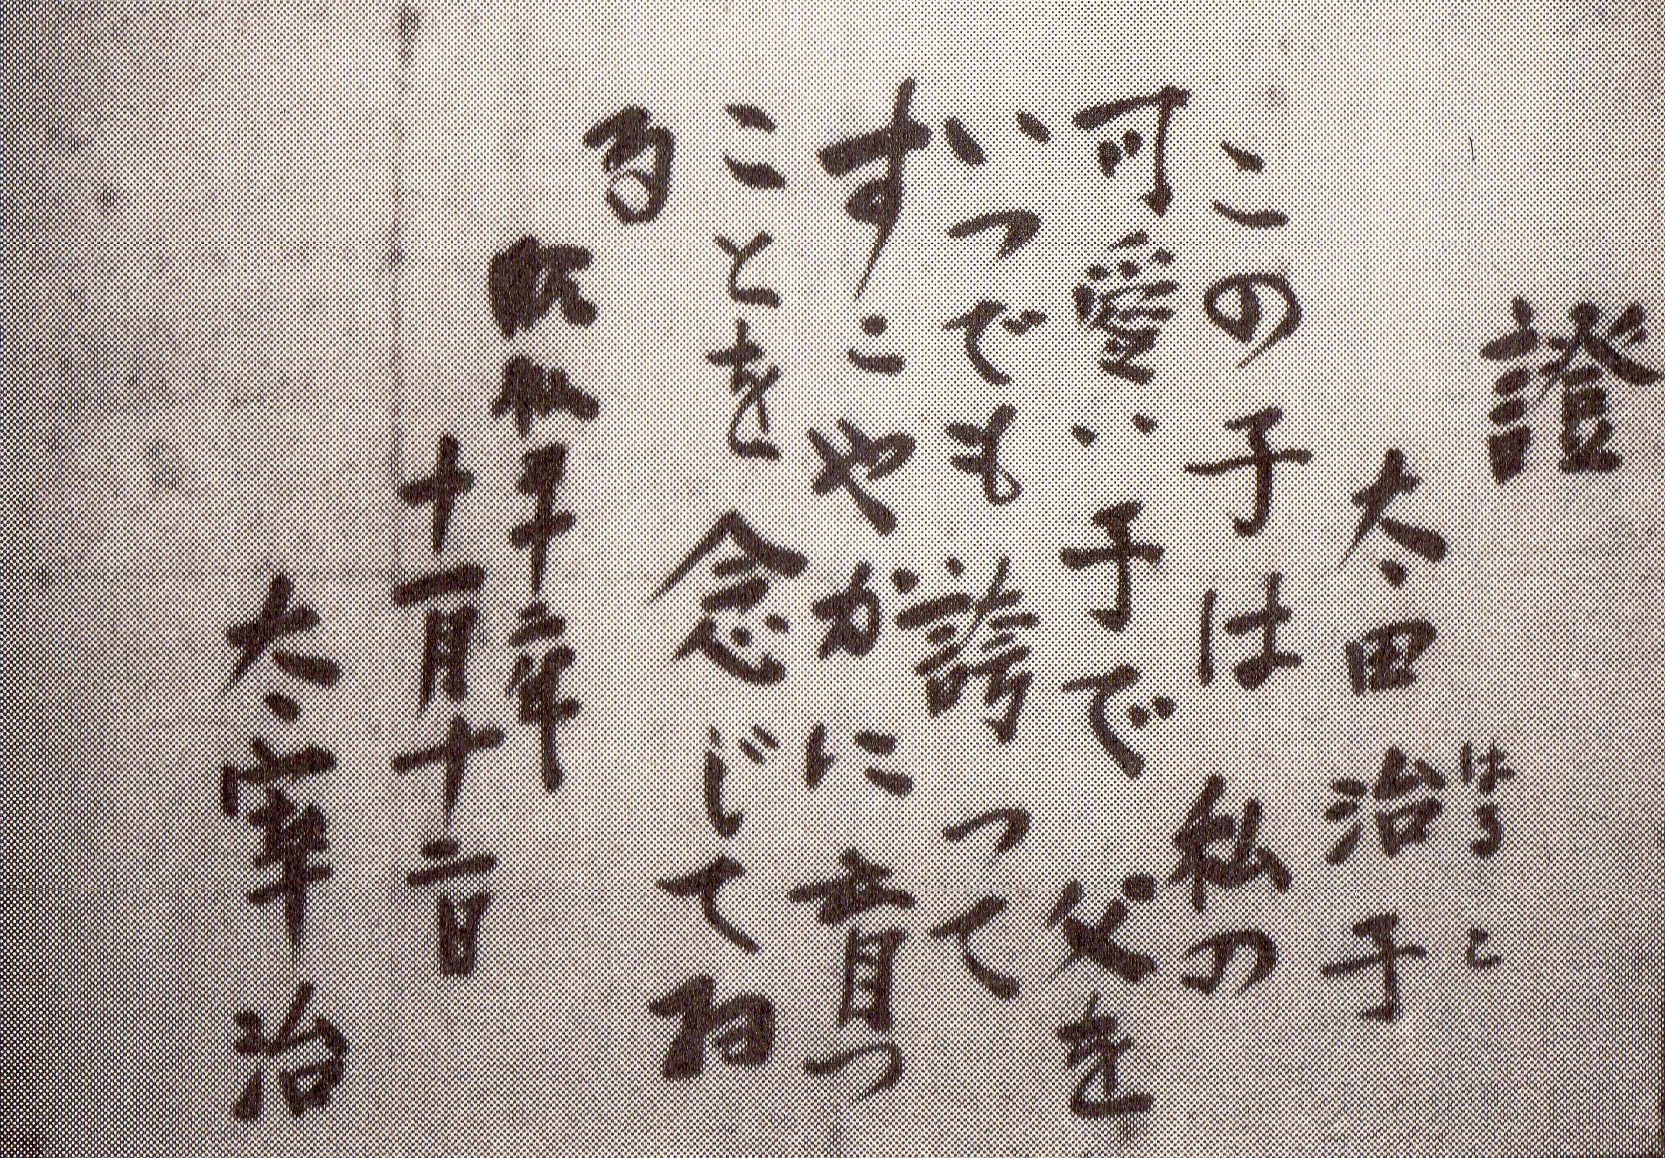 證
はるこ
太田治子
この子は私の
可愛い子で父を
いつでも誇って
すこやかに育つ
ことを念じてゐ
る
昭和二十二年
十一月十二日
太宰治